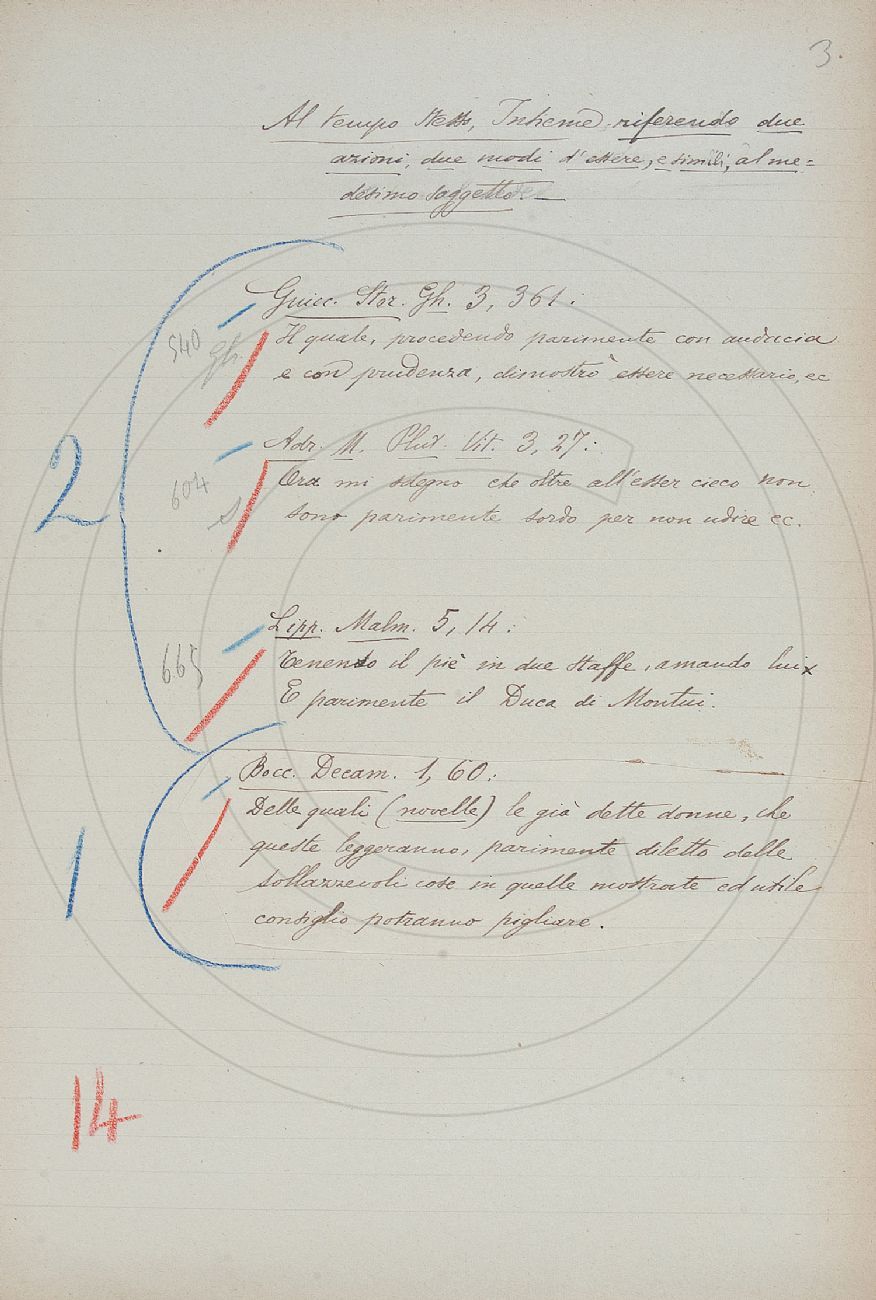 3.
Al tempo stesso, Insieme, riferendo due
azioni, due modi d'essere, e simili, al me=
desimo soggetto. —
Guicc. Stor. Gh. 3, 361:
540
Gh.
Il quale, procedendo parimente con audacia
e con prudenza, dimostrò essere necessario, ec
Adr. M. Plut. Vit. 3, 27:
604
Ora mi sdegno che oltre all'esser cieco non
sono parimente sordo per non udire ec.
2
Lipp. Malm. 5, 14:
665
Tenendo il piè in due staffe, amando lui
E parimente il Duca di Montui.
Bocc. Decam. 1, 60:
Delle quali (novelle) le già dette donne, che
queste leggeranno, parimente diletto delle
1
sollazzevoli cose in quelle mostrate ed utile
consiglio potranno pigliare.
14